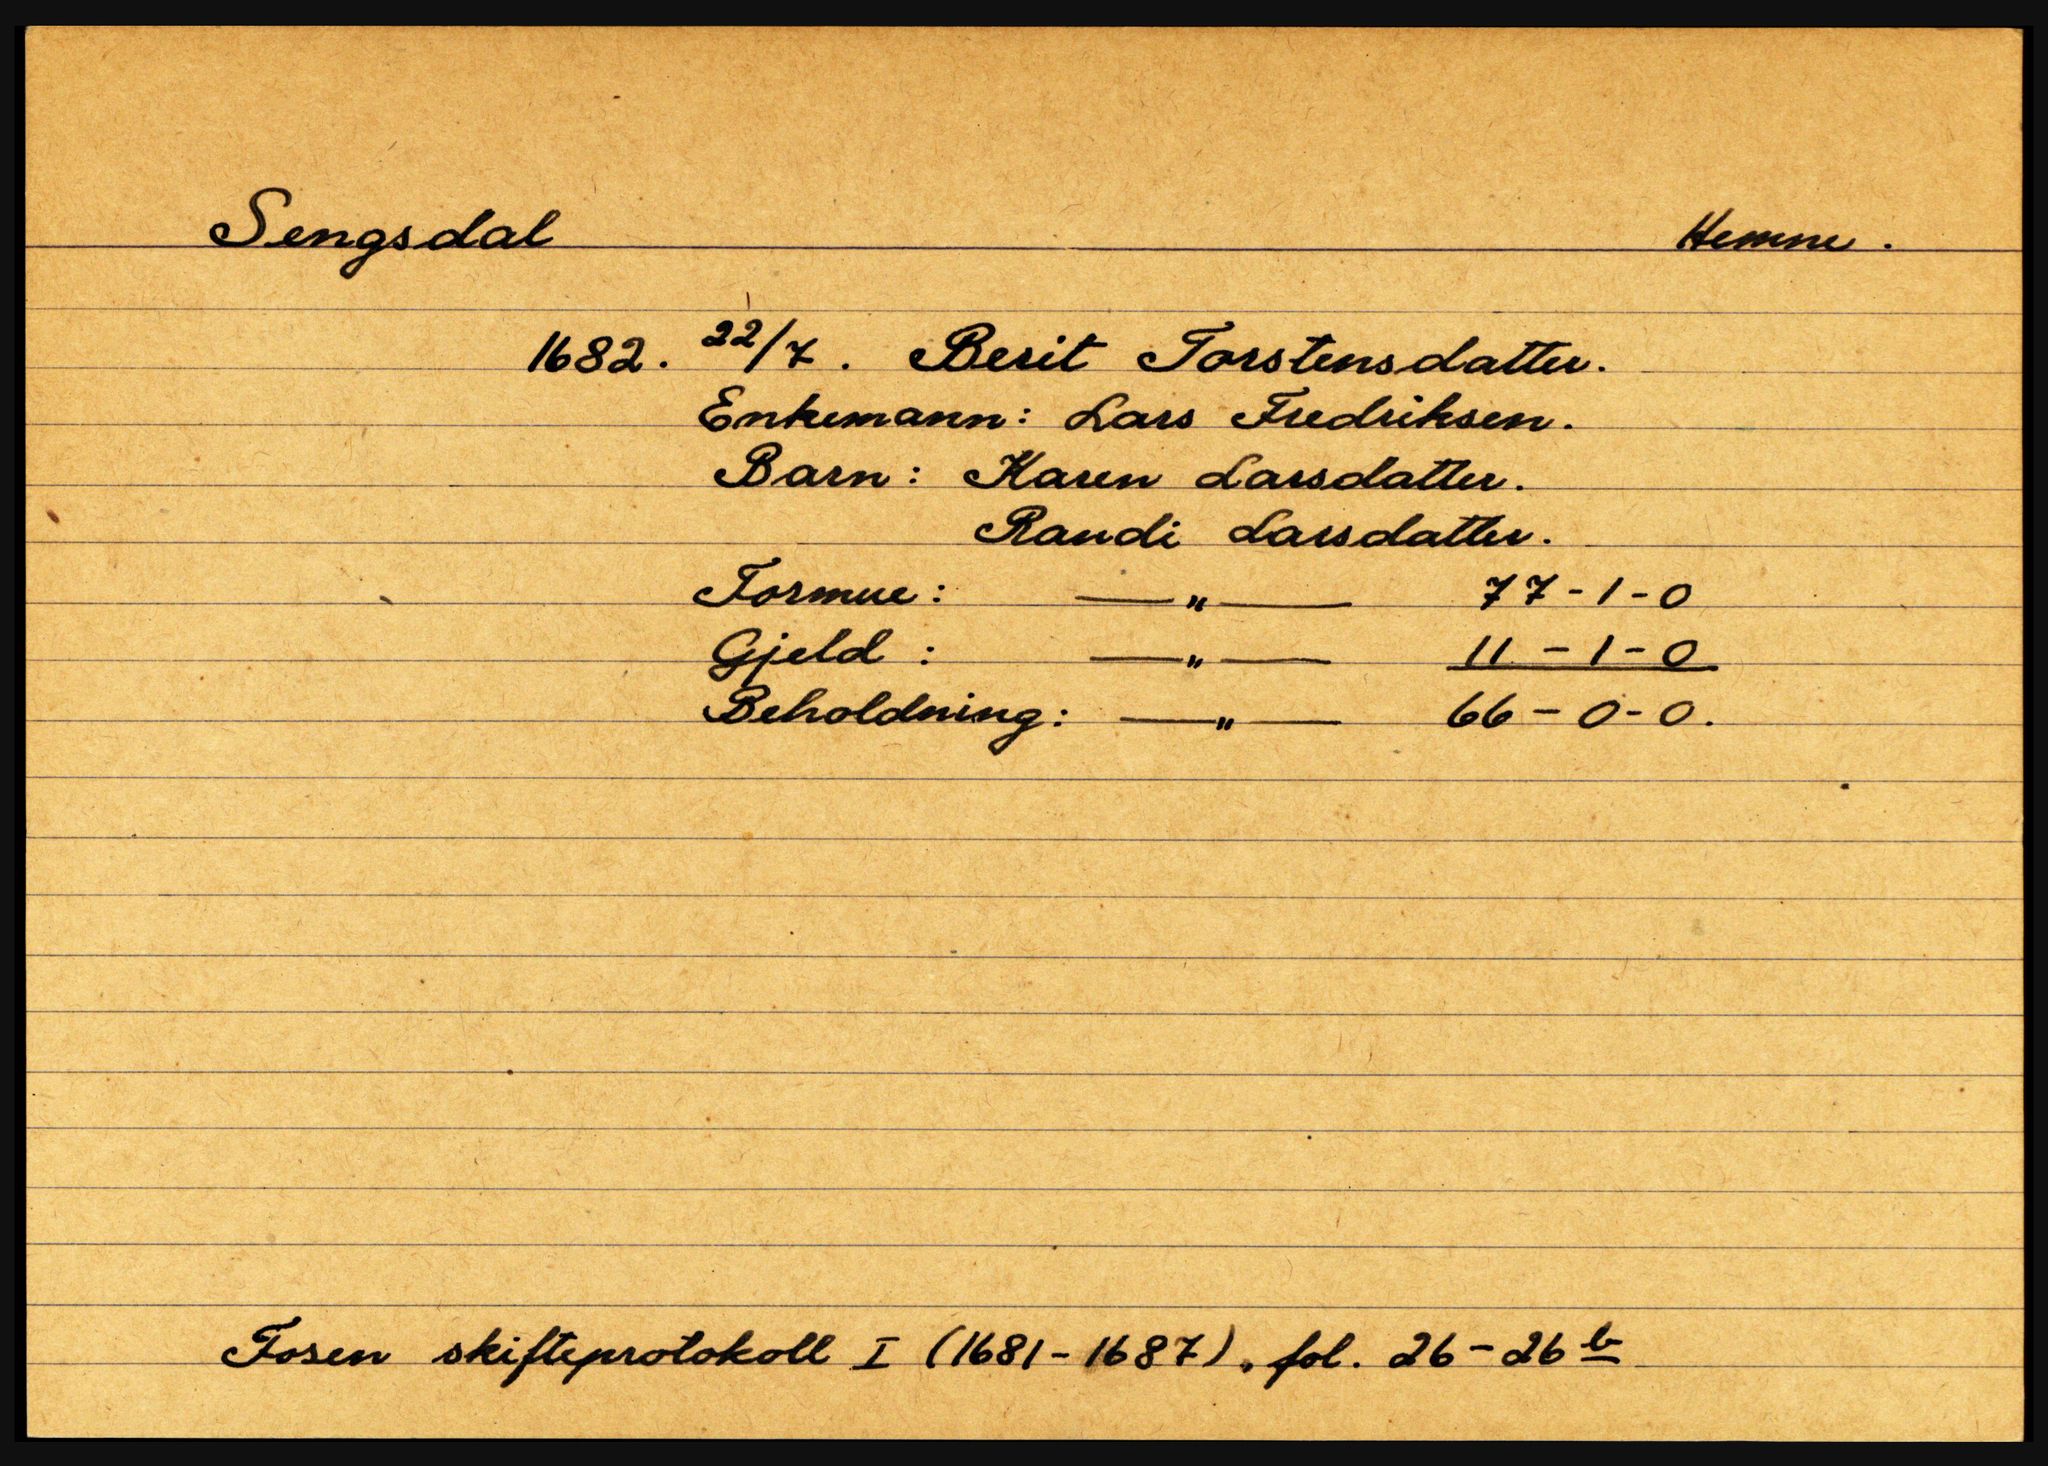 Sengsdal Hemne.
1682. 22/7. Berit Torstensdatter.
Enkemann: Lars Fredriksen.
Barn: Karen Larsdatter.
Randi Larsdatter.
Formue: —"— 77-1-0
Gjeld: —"— 11-1-0
Beholdning: —"— 66-0-0.
Fosen skifteprotokoll I (1681-1687), fol. 26-26 b